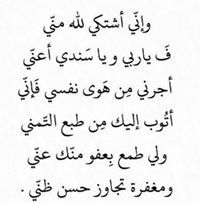 وإنّي أشتكي لله منّي
فَ ياربي و يا سَندي أعنّي
أجرني مِن هَوى نفسي فَإنّي
أتُوب إليك مِن طبع التّمني
ولي طمع بِعفو منّك عنّي
ومغفرة تجاوز حسن ظنّي .